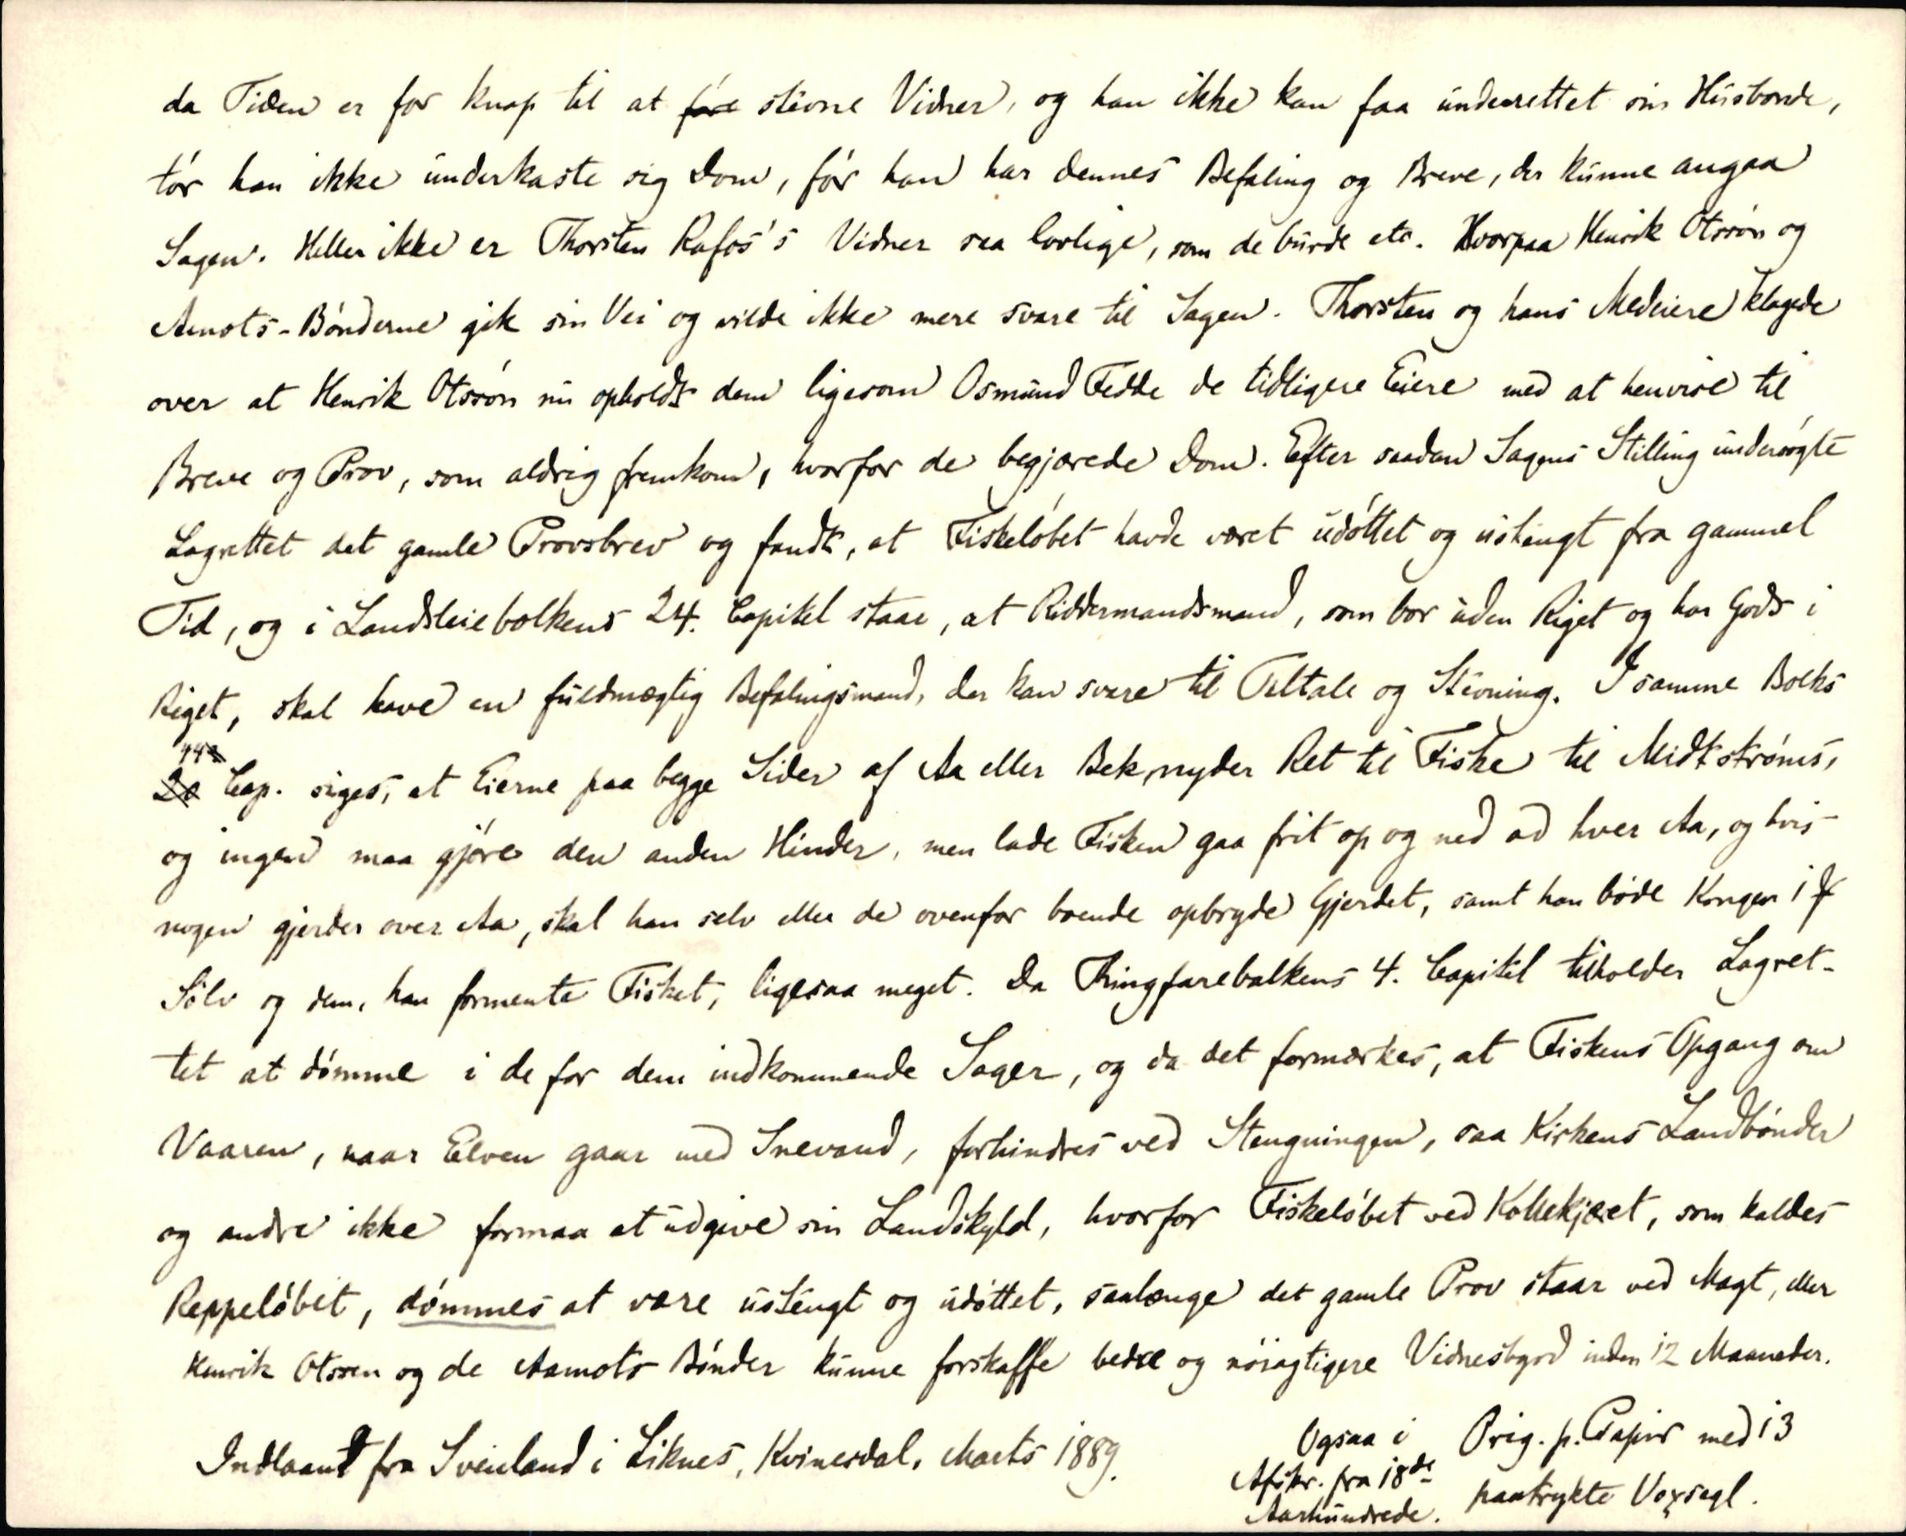 da Tiden er for knap til at føre stevne Vidner, og han ikke kan faa underrettet sin Husbonde,
tør han ikke underkaste sig Dom, før han har dennes Befaling og Breve, der kunne angaa
Sagen. Heller ikke er Thorsten Rafos's Vidner saa lovlige, som de burde etc. Hvorpaa Henrik Otssøn og
Aamots-Bønderne gik sin Vei og vilde ikke mere svare til Sagen. Thorsten og hans Medeiere klagede
over at Henrik Otssøn nu opholdt dem ligesom Osmund Fedde de tidligere Eiere med at henvise til
Breve og Prov, som aldrig fremkom, hvorfor de begjærede Dom. Efter saadan Sagens Stilling undersøgte
Lagrettet det gamle Provsbrev og fandt, at Fiskeløbet havde været udøttet og ustengt fra gammel
Tid, og i Landsleiebolkens 24. Capitel staar, at Riddermandsmand, som bor uden Riget og har Gods i
Riget, skal have en fuldmægtig Befalingsmand, der kan svare til Tiltale og Stevning. I samme Bolks
Cap. siges, at Eierne paa begge Sider af Aa eller Bek, nyder Ret til Fiske til Midtstrøms,
og ingen maa gjøre den anden Hinder, men lade Fisken gaa frit op og ned ad hver Aa, og hvis
nogen gjerder over Aa, skal han selv eller de ovenfor boende opbryde Gjerdet, samt han bøde Kongen 1
Sølv og dem, han formente Fisket, ligesaa meget. Da Thingfarebalkens 4. Capitel tilholder Lagret-
tet at dømme i de for dem indkommende Sager, og da det formærkes, at Fiskens Opgang om
Vaaren, naar Elven gaar med Snevand, forhindres ved Stengningen, saa Kirkens Landbønder
og andre ikke formaa at udgive sin Landskyld, hvorfor Fiskeløbet ved Kollekjæet, som kaldes
Reppeløbet, dømmes at være ustengt og udøttet, saalænge det gamle Prov staar ved Magt, eller
Henrik Otssen og de Aamots Bønder kunne forskaffe bedre og nøiagtigere Vidnesbyrd inden 12 Maaneder.
Indlaant fra Sveieland i Liknes, Kvinesdal, Marts 1889.
Ogsaa i
Afskr. fra 18de
Aarhundrede.
Orig. p. Papir med 13
paatrykte Voxsegl.